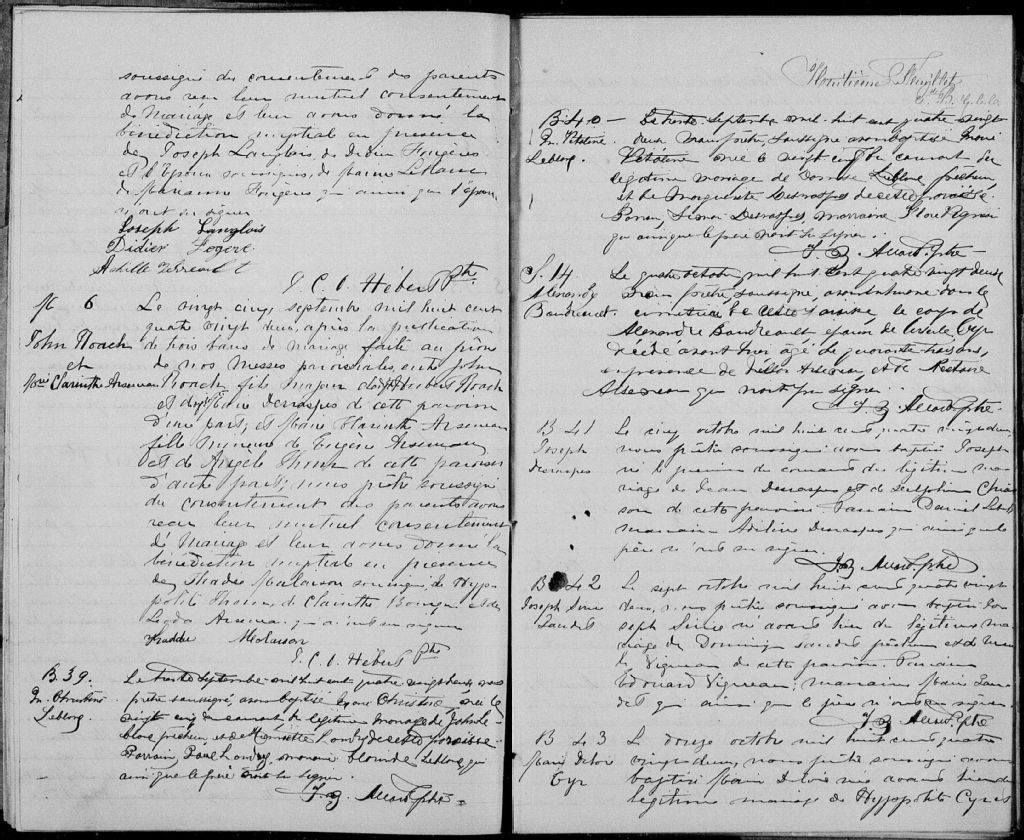 soussigné du consentement des parents
avons reçu leur mutuel consentement
de Mariage et leur avons donné la
bénédiction nuptial en présence
de Joseph Langlois, de Didier Fougères
et l'Epoux soussignés, de Marie Leblanc
de Marianne Fougères qui ainsi que l'épouse
n'ont su signer
Joseph Langlois
Didier Fogere
Achille Verreault
J. C. O. Hébert Ptre
M 6
John Noach
et
Mie Clarinthe Arseneau
Le vingt cinq septembre mil huit cent
quatre vingt deux, après la publication
de trois bans de mariage faite au prône
de nos Messes paroissiales, entre John
Noach, fils majeur de Hubert Noach
et de Marie Desraspes de cette paroisse
d'une part; et Marie Clarinthe Arseneau
fille mineure de Eugène Arseneau
et de Angèle de cette paroisse
d'autre part; nous prêtre soussigné
du consentement des parents avons
reçu leur mutuel consentement
de Mariage et leur avons donné la
bénédiction nuptial en présence
de Thadée Molaison soussigné, de Hyp-
polite de Clarinthe et de
Arseneau qui n'ont su signer
Thaddée Molaison
J. C. O. Hébert Ptre
B. 39.
M. Christine
Leblanc.
Le trente septembre mil huit cent quatre vingt deux nous
prêtre soussigné, avons baptisé Marie Christine, née le
vingt cinq du courant du légitime mariage de John Le-
blanc pêcheur et de Henriette Landry de cette paroisse.
Parrain, Paul Landry, marraine Leblanc qui
ainsi que le père n'ont su signer.
J. B. Allard Ptre
Feuillet
B. 40
M. Vitaline
Leblanc.
Le trente septembre mil huit cent quatre vingt
deux nous prêtre, soussigné avons baptisé Marie
Vitaline née le vingt cinq du courant du
légitime mariage de Leblanc pêcheur,
et de Marguerite Desraspes de cette paroisse
Parrain, Simon Desraspes, marraine Vigneau
qui ainsi que le père n'ont su signer.
J. B. Allard Ptre
S. 14
Alexandre
Boudreault
Le quatre octobre mil huit cent quatre vingt deux
nous prêtre, soussigné, avons inhumé dans le
cimetière de cette paroisse, le corps de
Alexandre Boudreault époux de Cyr
décédé avant hier âgé de quarante trois ans,
en présence de Arseneau, et de Nectaire
Arseneau qui n'ont pu signer.
J. B. Allard Ptre
B 41
Joseph
Desraspes
Le cinq octobre mil huit cent quatre vingt deux,
nous prêtre soussigné avons baptisé Joseph
né le premier du courant du légitime ma-
riage de Jean Desraspes et de Delphine Chias-
son de cette paroisse Parrain Daniel
marraine Adeline Desraspes qui ainsi que le
père n'ont su signer.
J. B. Allard Ptre
B 42
Joseph
Gaudet
Le sept octobre mil huit cent quatre vingt
deux, nous prêtre soussigné avons baptisé Jo-
seph né avant hier du légitime ma-
riage de Dominique Gaudet pêcheur et de
Vigneau de cette paroisse. Parrain
Edouard Vigneau; marraine Marie Gau-
det qui ainsi que le père n'ont su signer.
J. B. Allard Ptre
B 43
Marie
Cyr
Le douze octobre mil huit cent quatre
vingt deux, nous prêtre soussigné avons
baptisé Marie née avant hier du
légitime mariage de Hyppolite Cyr et